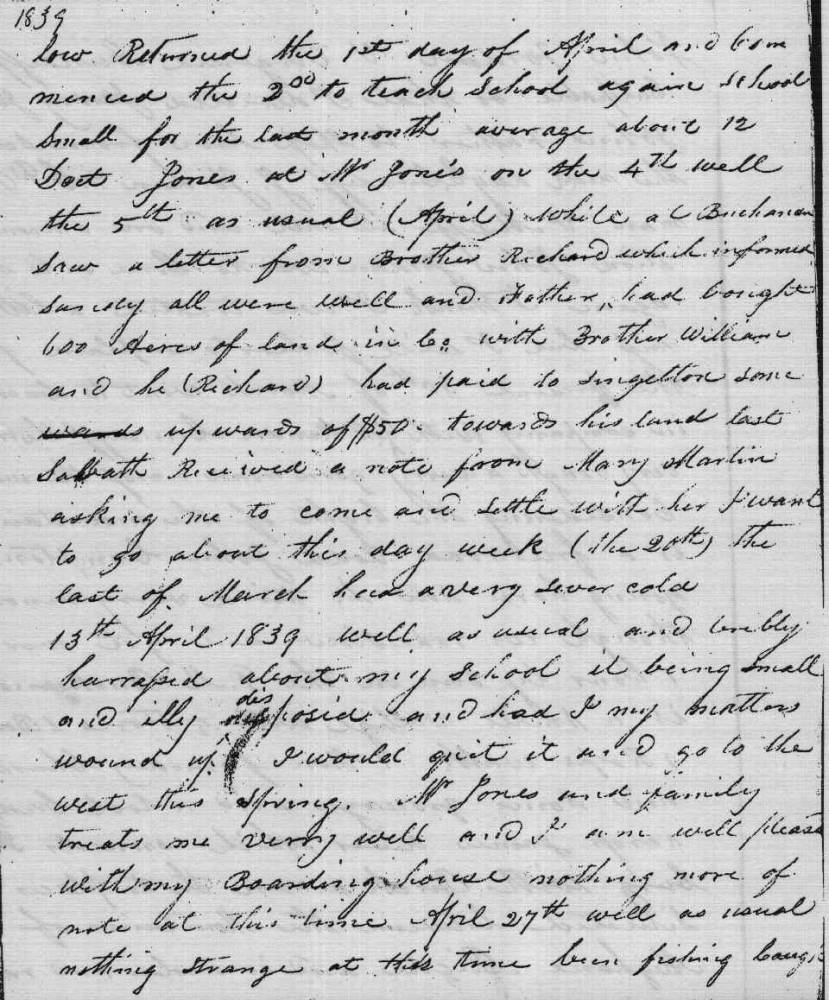 1839
low Returned the 1st day of April and Com
menced the 2nd to teach School again School
Small for the last month average about 12
Doct Jones at Mr Jones on the 4th well
the 5th as usual (April) while at Buchanan
Saw a letter from Brother Richard which informed
all were well and Father had bought
600 Acres of land in Co. with Brother William
and he (Richard) had paid to Singelton some
wards upwards of $50. towards his land last
Sabbath Received a note from Mary Martin
asking me to come and settle with her I want
to go about this day week (the 20th) The
last of March had a very sever cold
13th April 1839 well as usual and
harrassed about my School it being small
and illy disposed and had I my matters
wound up I would quit it and go to the
west this Spring. Mr Jones and family
treats me verry well and I am well pleased
with my Boarding house nothing more of
note at this time April 27th well as usual
nothing strange at this time been fishing